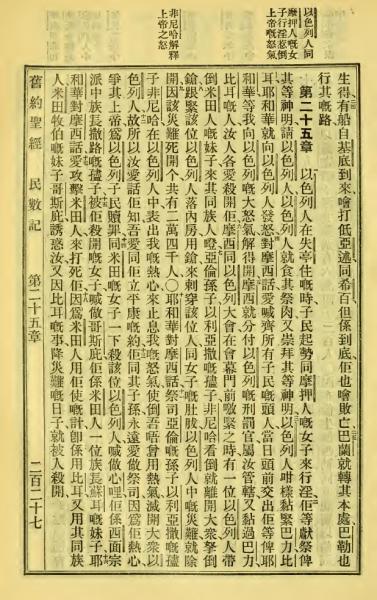 以色列人同
摩押人嘅女
子行淫惹倒
上帝嘅怒氣
非尼哈解釋
上帝之怒
生得有船自基底到來會打低亞述同希百但係到底佢也會敗亡巴蘭就轉其本處巴勒也
行其嘅路
第二十五章 以色列人在失亭住嘅時子民起勢同摩押人嘅女子來行淫佢等獻祭俾
其等神明請以色列人以色列人就食其祭肉又崇拜其等神明以色列人咁樣黏緊巴力比
耳耶和華就向以色列人發怒對摩西話愛喊齊所有子民嘅頭人當日頭前交出佢等俾耶
和華等我向以色列嘅大怒氣解得開摩西就分付以色列嘅刑罰官屬汝管轄又黏過巴力
比耳嘅人汝人各愛殺開佢摩西同以色列大會在會幕門前噭緊之時有一位以色列人帶
倒米田人嘅妹子來其同族人瞪亞倫孫子以利亞撒嘅孻子非尼哈看倒就離開大衆拏倒
鎗跟緊該位以色列人落內房用鎗來刺穿該位人同女子嘅肚腹以色列人中嘅災難就除
開因該災難死開个共有二萬四千人〇耶和華對摩西話祭司亞倫嘅孫子以利亞撒嘅孻
子非尼哈在以色列人中表出我嘅熱心來止息我嘅怒氣使倒吾唔會用熱氣滅開大衆以
色列人故所以汝愛話佢知吾愛同佢立平康嘅約佢同其子孫永遠愛做祭司因爲佢熱心
爭其上帝爲以色列子民贖罪同米田嘅女子一下殺該位以色列人喊做心哩佢係西面宗
派中族長撒路嘅孻子被佢殺開嘅女子喊做哥斯庇佢係米田人一位族長蘇耳嘅妹子耶
和華對摩西話愛攻擊米田人來打死佢因爲米田人用佢使嘅計卽係用比耳又用其同族
人米田牧伯嘅妹子哥斯庇誘惑汝又因比耳嘅事降災難嘅日子就被人殺開
舊約聖經 民數記 第二十五章 二百二十七